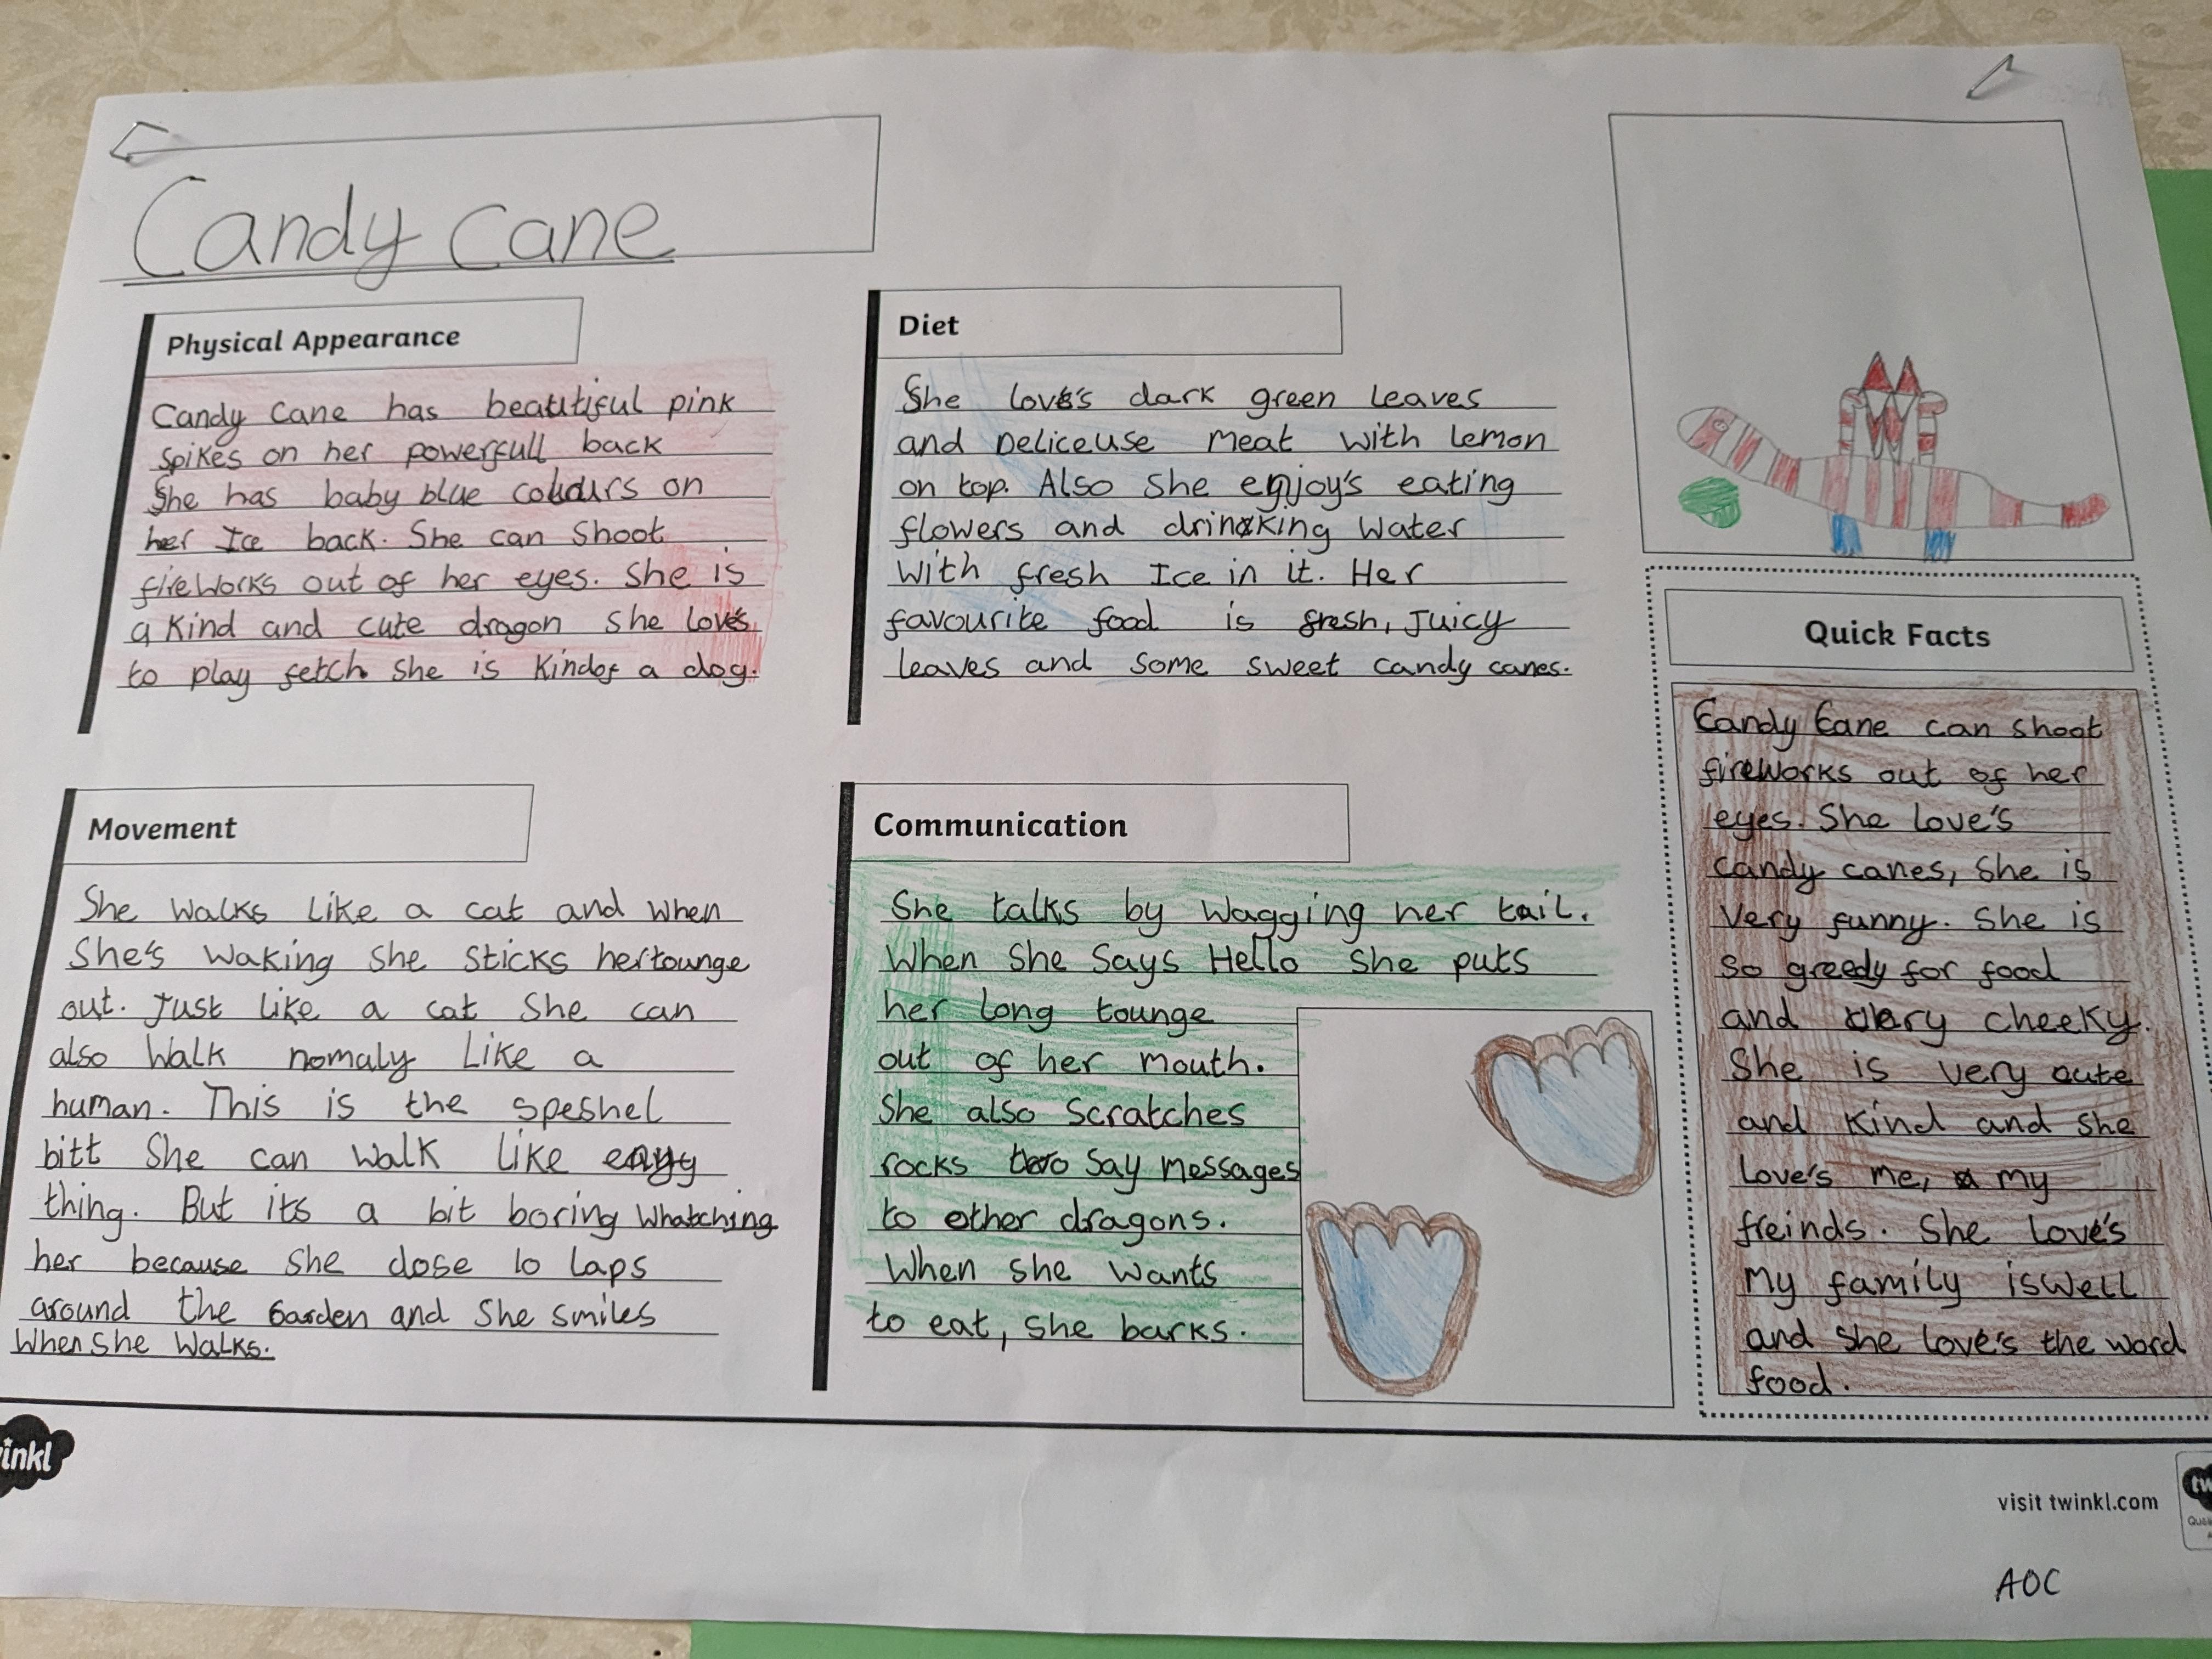 Candy Cane
Physical Appearance
Candy Cane has beautiful pink
spikes on her powerfull back
She has baby blue colours on
her Ice back. She can Shoot
fireworks out of her eyes. She is
a Kind and cute dragon She love's
to play fetch She is Kindof a dog.
Diet
She love's dark green leaves
and Deliceuse meat with lemon
on top. Also She enjoy's eating
flowers and drinking Water
With fresh Ice in it. Her
favourite food is fresh, Juicy
leaves and some sweet candy canes.
Movement
She Walks Like a cat and When
She's Waking She Sticks her tounge
out. Just like a cat She can
also Walk nomaly Like a
human. This is the speshel
bitt She can Walk Like eny
thing. But its a bit boring Whatching
her because She dose 10 Laps
around the Garden and She Smiles
When She Walks.
Communication
She talks by Wagging her tail.
When She Says Hello She puts
her long tounge
out of her mouth.
She also Scratches
rocks to Say Messages
to other dragons.
When she Wants
to eat, she barks.
Quick Facts
Candy Cane can Shoot
fireworks out of her
eyes. She love's
candy canes, She is
Very funny. She is
so greedy for food
and very cheeky.
She is very cute
and Kind and She
Love's me, my
freinds. She love's
My family is Well
and She love's the word
food.
inkl
visit twinkl.com
tw
AOC